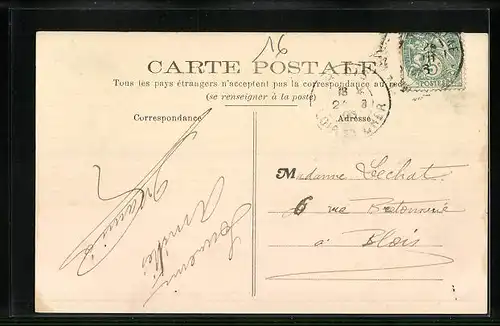 16
CARTE POSTALE
Tous les pays étrangers n'acceptent pas la correspondance au
(se renseigner à la poste)
Correspondance
Adresse
Souvenir
Amitiés
Madame Lechat
6 rue Bretonnerie
a Blois
LOIR-ET-CHER